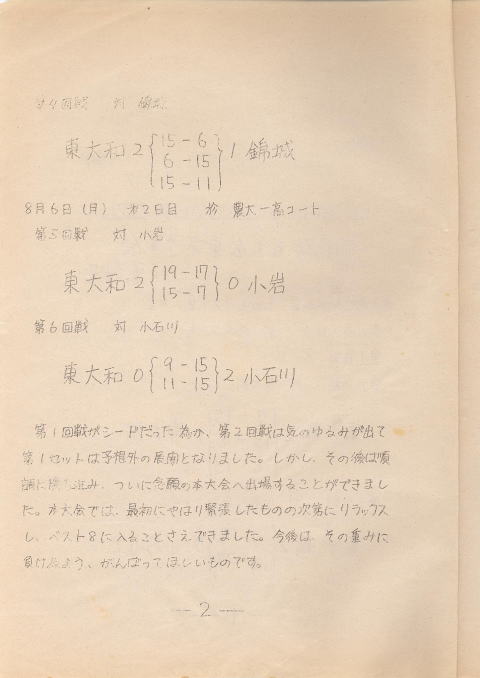 第4回戦 対 錦城
東大和 2 { 15 - 6
6 - 15
15 - 11 } 1 錦城
8月6日(月) 第2日目 於 農大一高コート
第5回戦 対 小岩
東大和 2 { 19 - 17
15 - 7 } 0 小岩
第6回戦 対 小石川
東大和 0 { 9 - 15
11 - 15 } 2 小石川
第1回戦がシードだった為か、第2回戦は気のゆるみが出て
第1セットは予想外の展開となりました。しかし、その後は順
調に み、ついに念願の本大会へ出場することができまし
た。本大会では、最初にやはり緊張したものの次第にリラックス
し、ベスト8に入ることさえできました。今後は、その重みに
負けぬよう、がんばってほしいものです。
— 2 —